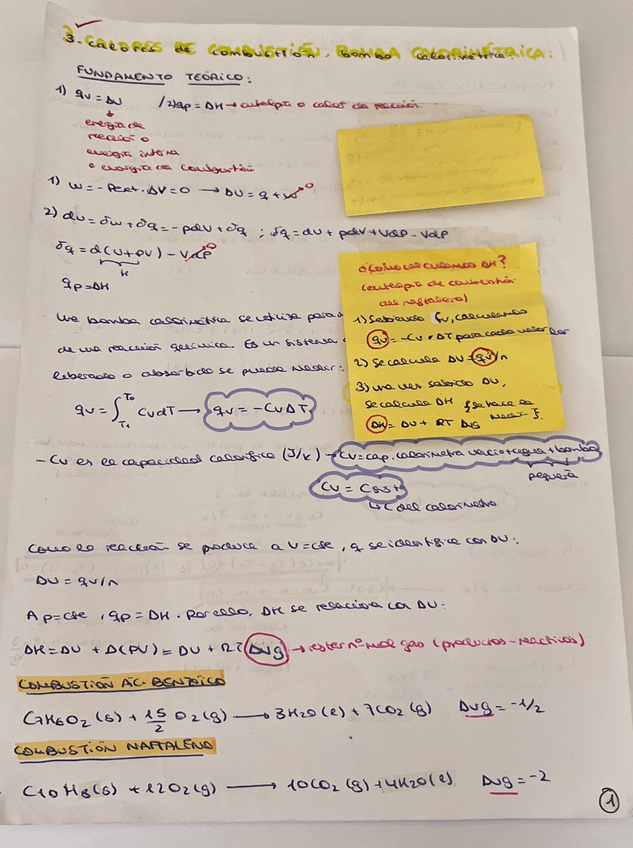 3. CALORES DE COMBUSTIÓN. BOMBA CALORIMÉTRICA:
FUNDAMENTO TEÓRICO:
1) qv = ΔU / 2) qp = ΔH → entalpía o calor de reacción
↓
energía de
reacción o
energía interna
o energía de combustión
1) w = -Pext · ΔV = 0 → ΔU = q + w⁰
2) dU = δw + δq = -pdV + δq ; δq = dU + pdV + Vdp - Vdp
δq = d(U+pV) - Vdp⁰
H
qp = ΔH
Una bomba calorimétrica se utiliza para
de una reacción química. Es un sistema
liberado o absorbido se puede medir:
qv = ∫ CvdT → qv = -CvΔT
¿Cómo calculamos ΔH?
(entalpía de combustión
del naftaleno)
1) Sabiendo Cv, calculamos
qv = -Cv · ΔT para cada valor
2) Se calcula ΔU = qv/n
3) Una vez sabido ΔU,
se calcula ΔH
ΔH = ΔU + RT Δνg
- Cv es la capacidad calorífica (J/K) → Cv = cap. calorímetro vacío + agua + bomba
pequeña
Cv = Const
↳ C del calorímetro
Como la reacción se produce a V = cte, q se identifica con ΔU:
ΔU = qv/n
A p = cte, qp = ΔH. Por ello, ΔH se relaciona con ΔU:
ΔH = ΔU + Δ(PV) = ΔU + RT Δνg → restar nº mol gas (productos - reactivos)
COMBUSTIÓN ÁC. BENZOICO
C7H6O2 (s) + 15/2 O2 (g) → 3H2O (l) + 7CO2 (g) Δνg = -1/2
COMBUSTIÓN NAFTALENO
C10H8 (s) + 12O2 (g) → 10CO2 (g) + 4H2O (l) Δνg = -2
1